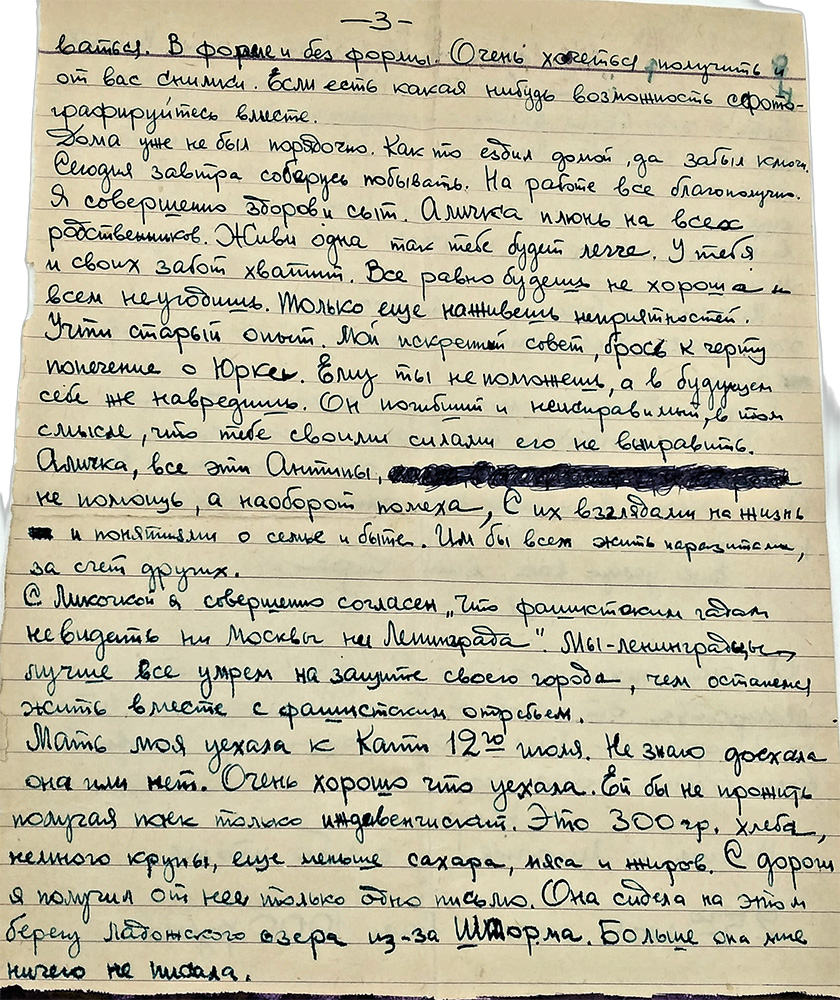 —3—
ваться. В форме и без формы. Очень хочеться, получить и
от вас снимки. Если есть какая нибудь возможность сфото-
графируйтесь вместе.
Дома уже не был порядочно. Как то ездил домой, да забыл ключи.
Сегодня завтра соберусь побывать. На работе все благополучно.
Я совершенно здоров и сыт. Аличка плюнь на всех
родственников. Живи одна так тебе будет легче. У тебя
и своих забот хватит. Все равно будешь не хороша и
всем неугодишь. Только еще наживешь неприятностей.
Учти старый опыт. Мой искренний совет, брось к черту
попечение о Юрке. Ему ты не поможешь, а в будущем
себе же навредишь. Он погибший и неисправимый, в том
смысле, что тебе своими силами его не выправить.
Аличка, все эти Антипы,
не помощь, а наоборот помеха, С их взглядами на жизнь
и понятиями о семье и быте. Им бы всем жить паразитами,
за счет других.
С Ликочкой я совершенно согласен „Что фашистским гадам
не видать ни Москвы ни Ленинграда". Мы-ленинградцы
лучше все умрем на защите своего города, чем останемся
жить вместе с фашистским отребьем.
Мать моя уехала к Кати 12го июля. Не знаю доехала
она или нет. Очень хорошо что уехала. Ей бы не прожить
получая паек только иждевенческий. Это 300 гр. хлеба,
немного крупы, еще меньше сахара, мяса и жиров. С дороги
я получил от нее только одно письмо. Она сидела на этом
берегу Ладожского озера из-за Шторма. Больше она мне
ничего не писала.